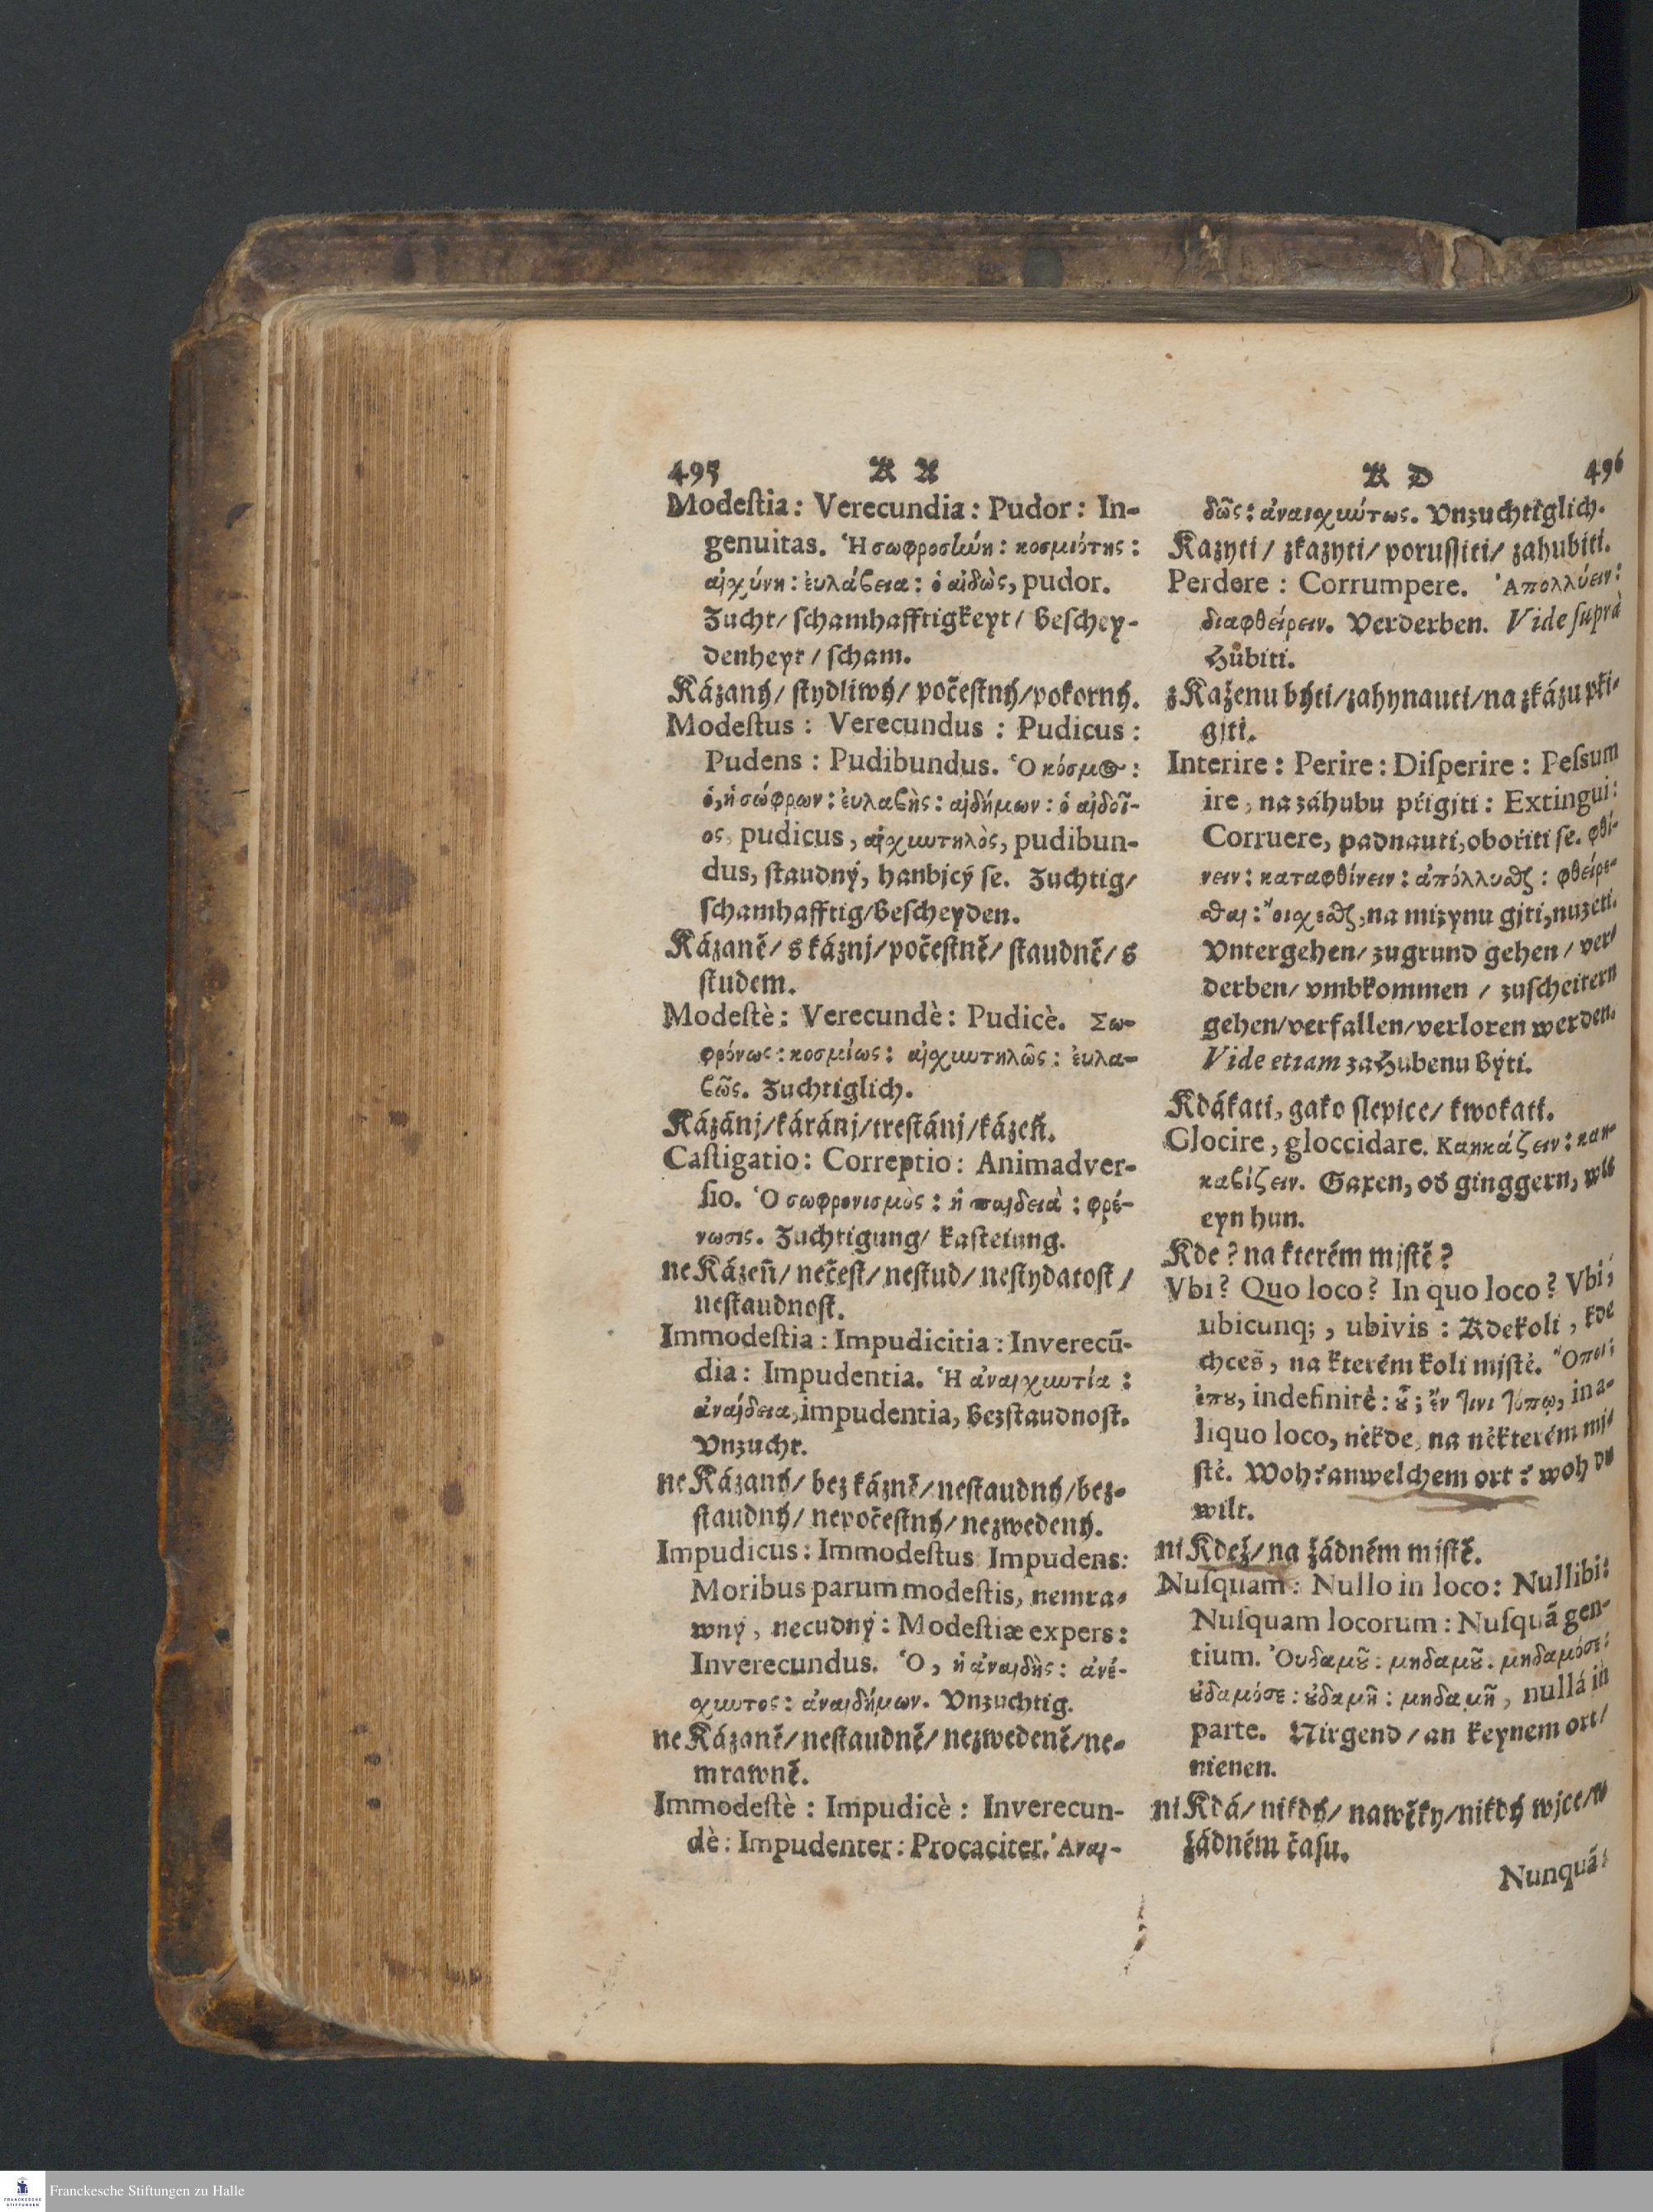 495 K A
Modeſtia: Verecundia: Pudor: In-
genuitas. Ἡ σωφροσύνη: κοσμιότης:
αἰχύνη: ἐυλάβεια: ὁ αἰδὼς, pudor.
Zucht/ ſchamhafftigkeyt/ Beſchey-
denheyt / ſcham.
Kázaný/ ſtydliwý/ počeſtný/pokorný.
Modeſtus: Verecundus: Pudicus:
Pudens: Pudibundus. Ὁ κόσμιος:
ὁ, ἡ σώφρων: ἐυλαβὴς: αἰδήμων: ὁ αἰδοῖ-
ος, pudicus, αἰχυντηλὸς, pudibun-
dus, ſtaudný, hanbjcý ſe. Zuchtig/
ſchamhafftig/Beſcheyden.
Kázaně/ s káznj/počeſtně/ ſtaudně/ s
ſtudem.
Modeſtè: Verecundè: Pudicè. Σω-
φρόνως: κοσμίως: αἰχυντηλῶς: ἐυλα-
βῶς. Zuchtiglich.
Kázánj/káránj/treſtánj/kázeň.
Caſtigatio: Correptio: Animadver-
ſio. Ὁ σωφρονισμὸς: ἡ παιδειὰ: φρέ-
νωσις. Zuchtigung/ kaſteiung.
ne Kázeň/ nečeſt/ neſtud/ neſtydatoſt /
neſtaudnoſt.
Immodeſtia: Impudicitia: Inverecũ-
dia: Impudentia. Ἡ ἀναιχυντία:
ἀναίδεια, impudentia, Bezſtaudnoſt.
Vnzucht.
ne Kázaný/ bez kázně/neſtaudný/bez-
ſtaudný/ nepočeſtný/ nezwedený.
Impudicus: Immodeſtus: Impudens:
Moribus parum modeſtis, nemra-
wný, necudný: Modeſtiæ expers:
Inverecundus. Ὁ, ἡ ἀναιδὴς: ἀνέ-
χυντος: ἀναιδήμων. Vnzuchtig.
ne Kázaně/neſtaudně/ nezwedeně/ne-
mrawně.
Immodeſtè: Impudicè: Inverecun-
dè: Impudenter: Procaciter. Ἀναι-
K D 496
δῶς: ἀναιχύντως. Vnzuchtiglich.
Kazyti / zkazyti/ poruſſiti/ zahubiti.
Perdere: Corrumpere. Ἀπολλύειν:
διαφθείρειν. Verderben. Vide ſuprà
Hubiti.
z Kaženu býti/zahynauti/na zkázu při-
gjti.
Interire: Perire: Diſperire: Peſsum
ire, na záhubu přigjti: Extingui:
Corruere, padnauti, obořiti ſe. φθί-
νειν: καταφθίνειν: ἀπόλλυσθαι: φθείρε-
σθαι: οἴχεσθαι, na mizynu gjti, nuzeti.
Vntergehen/ zugrund gehen / ver/
derben/ vmbkommen / zuſcheitern
gehen/verfallen/verloren werden.
Vide etiam zaHubenu Býti.
Kdákati, gako ſlepice/ kwokati.
Glocire, gloccidare. Κακκάζειν: κακ-
καβίζειν. Gaxen, os ginggern, wie
eyn hun.
Kde? na kterém mjſtě?
Vbi? Quo loco? In quo loco? Vbi,
ubicunq;, ubivis: Kdekoli, kde
chceš, na kterém koli mjſtě. Ὅποι:
ὅπου, indefinitè: οὗ; ἔν τινι τόπῳ, in a-
liquo loco, někde, na některém mj/
ſtě. Woh? an welchem ort? woh du
wilt.
ni Kdež/ na žádném mjſtě.
Nuſquam: Nullo in loco: Nullibi:
Nuſquam locorum: Nuſquã gen-
tium. Ὀυδαμοῦ: μηδαμοῦ. μηδαμόσε:
οὐδαμόσε: οὐδαμῆ: μηδαμῆ, nullá in
parte. Nirgend / an keynem ort/
nienen.
ni Kdá/ nikdý/ nawěky/nikdý wjce/w
žádném čaſu.
Nunquã:
Franckesche Stiftungen zu Halle
FRANCKESCHE
STIFTUNGEN